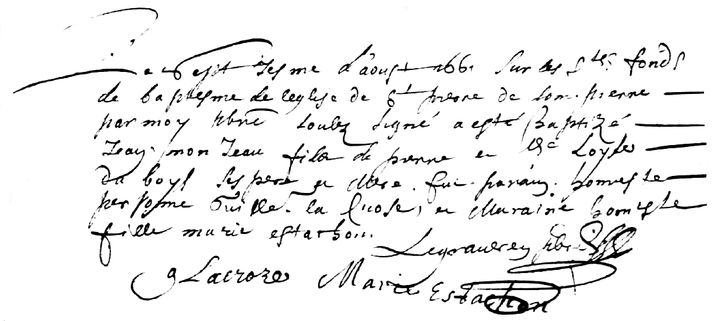 Le vingt sesme d'aoust 166. sur les Stes fonds
de baptesme de leglise de St pierre de Dom-pierre
par moy pbre soubz signé a esté baptizé
Jean mon Jeau fils de pierre et de Loyse
du boys ses pere et mere. fut parain honneste
personne Guille la Crose, et Maraine honneste
fille marie estachon.
pbre
g Lacroze Marie Estachon